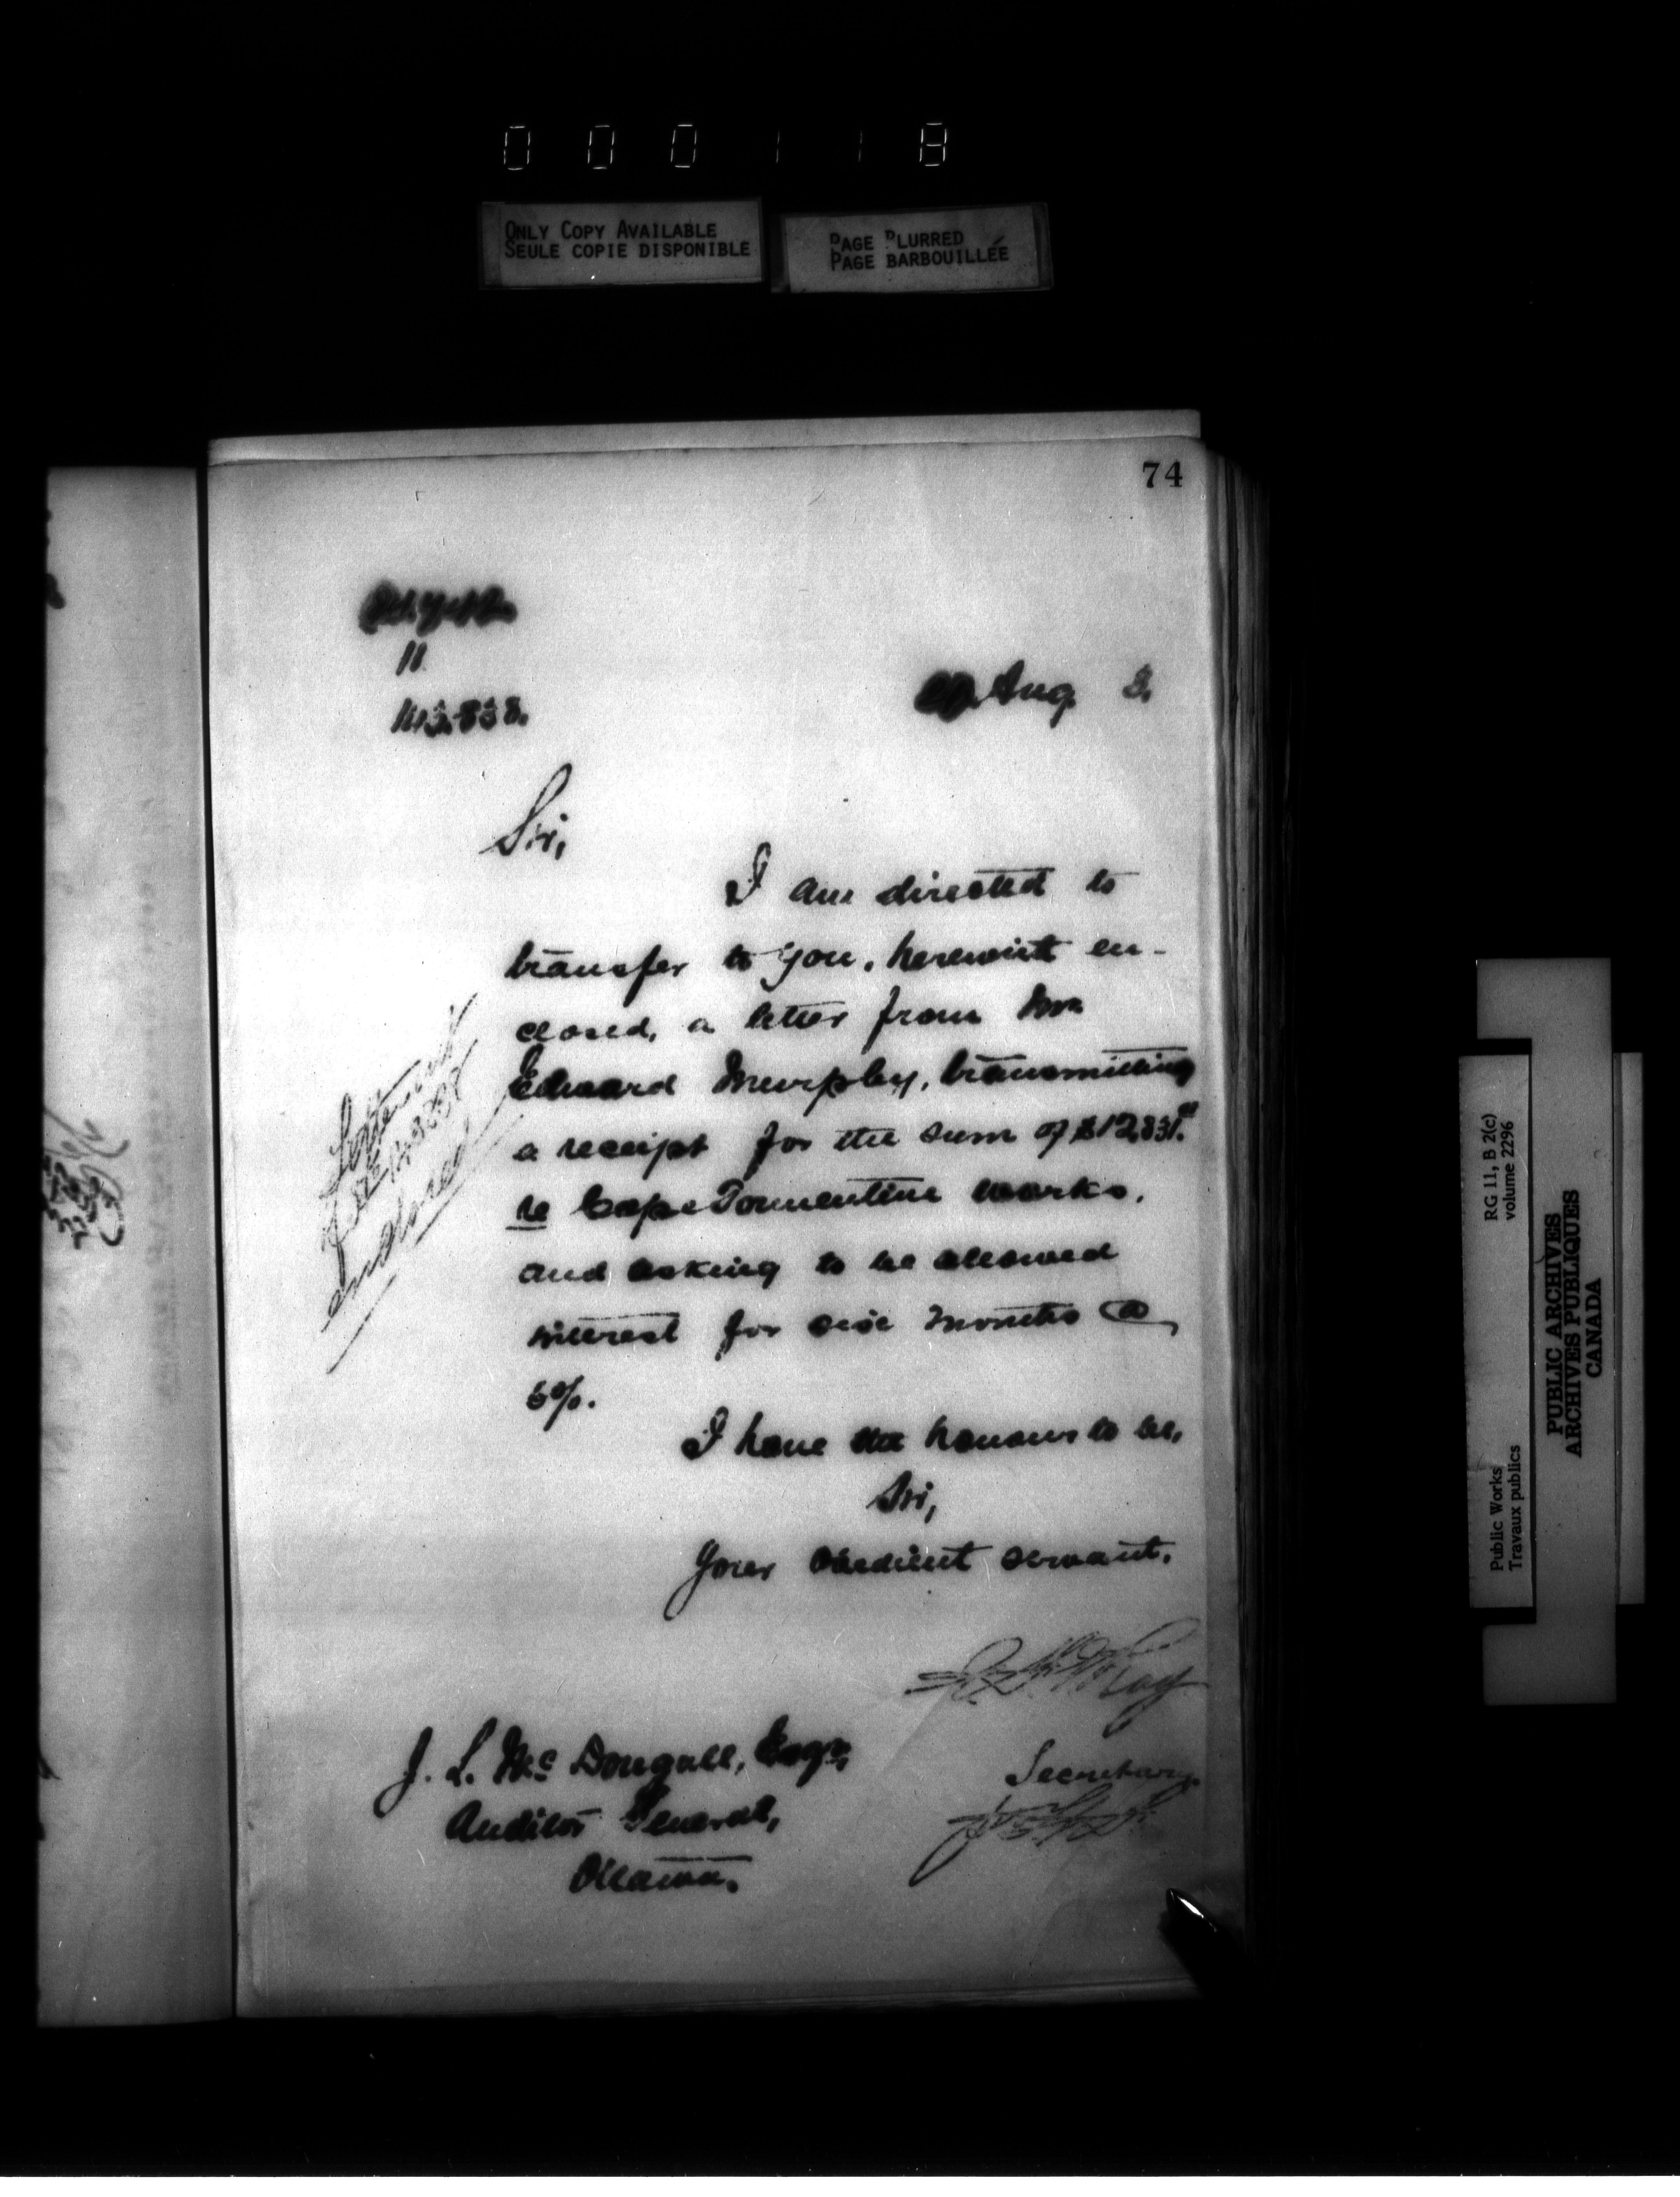 0 0 0 1 1 8
ONLY COPY AVAILABLE
SEULE COPIE DISPONIBLE
PAGE BLURRED
PAGE BARBOUILLÉE
74
11
Aug 2.
Sir,
I am directed to
transfer to you, herewith en-
closed, a letter from Mr
Edward Murphy, transmitting
a receipt for the sum of $12,831.
re Cape Tormentine works,
and asking to be allowed
interest for six months @
6%.
I have the honour to be,
Sir,
Your obedient servant,
Secretary.
J. L. Mc Dougall, Esqr,
Auditor General,
Ottawa.
RG 11, B 2(c)
volume 2296
Public Works
Travaux publics
PUBLIC ARCHIVES
ARCHIVES PUBLIQUES
CANADA